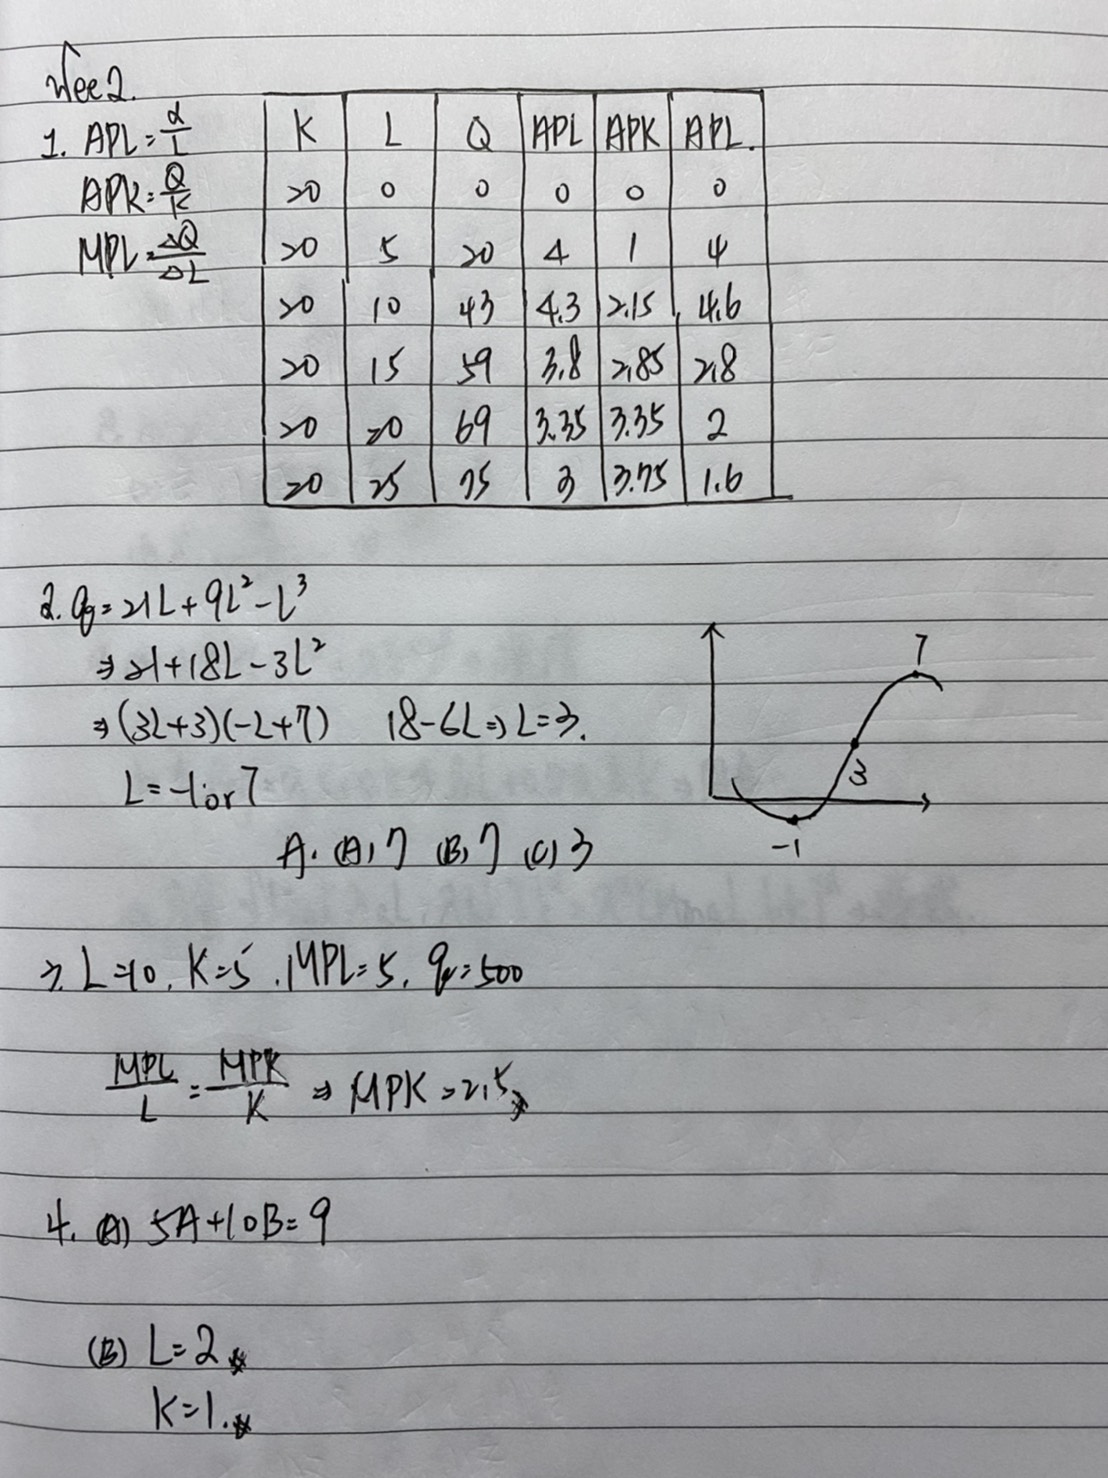 Wee2.
1. APL = Q/L
APK = Q/K
MPL = △Q/△L
K L Q APL APK APL.
20 0 0 0 0 0
20 5 20 4 1 4
20 10 43 4.3 2.15 4.6
20 15 59 3.8 2.85 2.8
20 20 69 3.35 3.35 2
20 25 75 3 3.75 1.6
2. q = 21L + 9L² - L³
⇒ 21 + 18L - 3L²
⇒ (3L+3)(-L+7) 18-6L ⇒ L=3.
L = -1 or 7
A. (A) 7 (B) 7 (C) 3
7
3
-1
3. L=10, K=5, MPL=5, q=500
MPL/L = MPK/K ⇒ MPK = 2.5
4. (A) 5A+10B=9
(B) L=2
K=1.